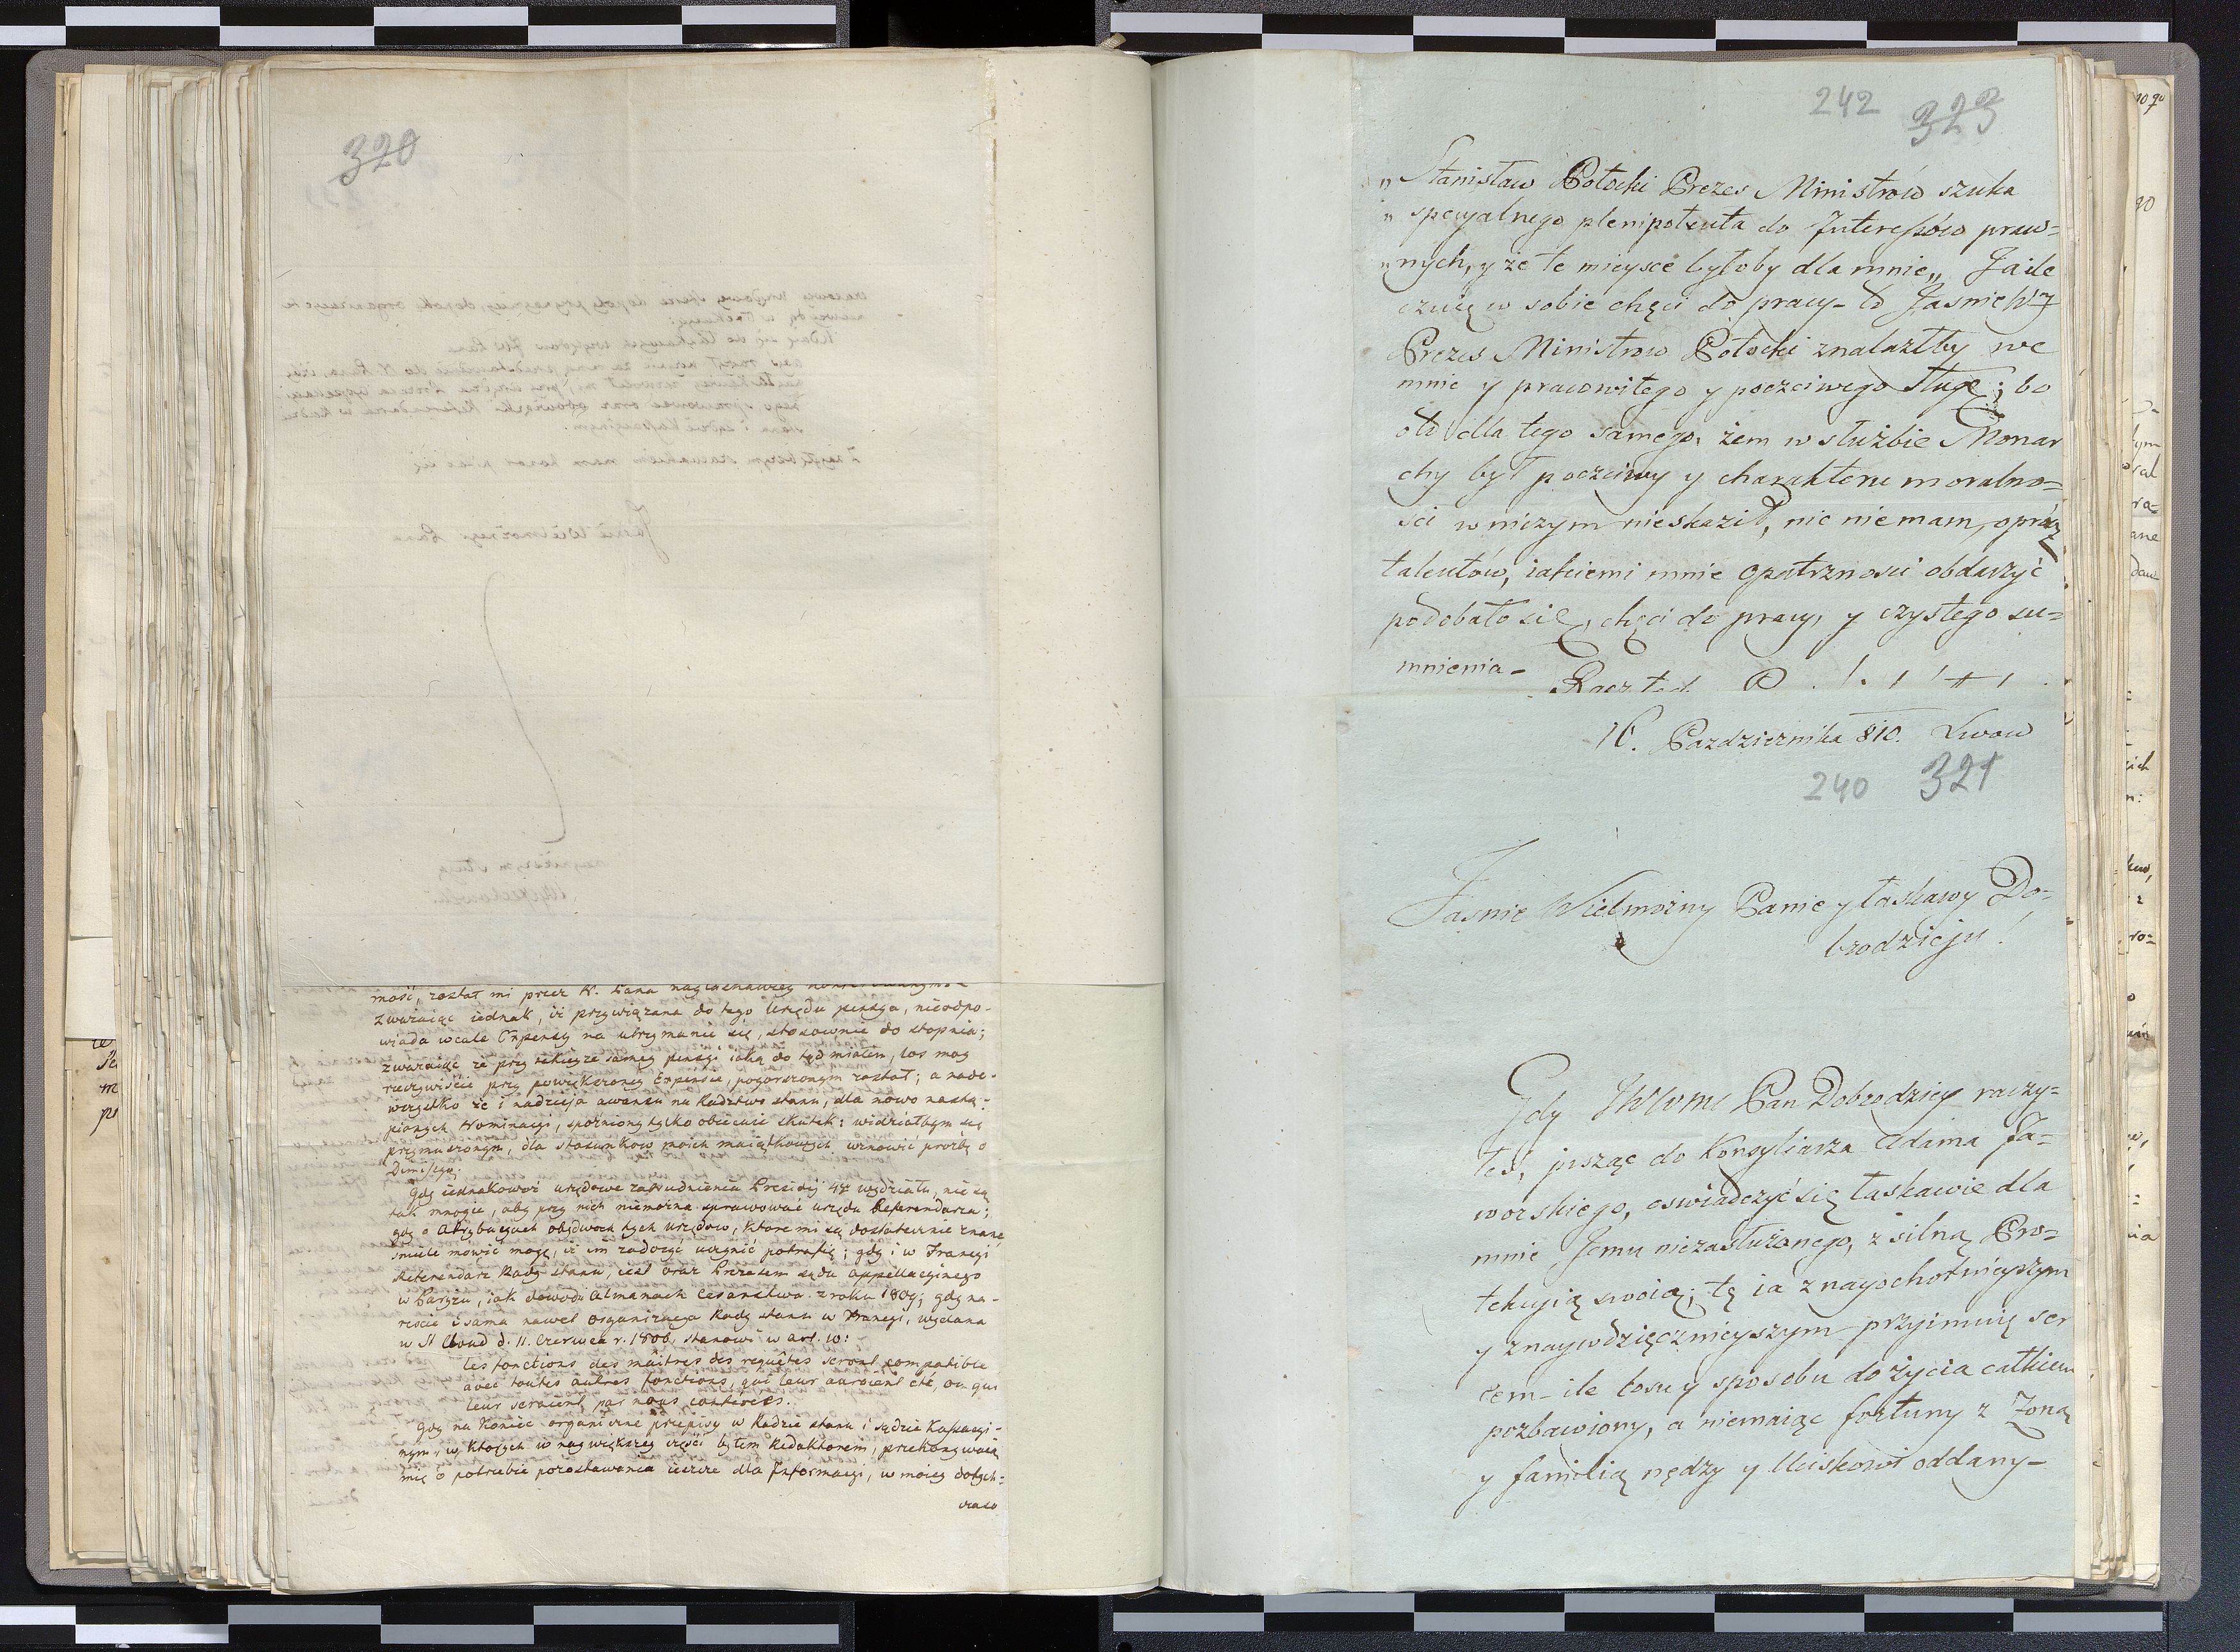 320
mość, został mi przez W. Pana naglaskawiey
zważaiąc iednak, iż przywiązana do tego Urzędu pensya, nieodpo-
wiada wcale Expensy na utrzymanie się, stosownie do stopnia;
zważaiąc że przy takieyże samey pensyi iaką do tąd miałem, los moy
rzeczywiście przy powiększoney Expensie, pogorszonym został; a nade-
wszystko że i nadzieja awansu na Radztwo stanu, dla nowo nastą-
pionych Nominacyi, spóźniony tylko obiecuie skutek: widziałbym się
przymuszonym, dla stosunkow moich maiątkowych wznowić prośbę o
Dimissyą.
Gdy iednakowoż urzędowe zatrudnienia Prezesij wydziału, nie są
tak mnogie, aby przy nich niemożna sprawować urzędu Referendarza;
gdy o Attrybucyach obudwóch tych urzędow, które mi są dostatecznie znane
śmiele mówić mogę, iż im zadosyć uczynić potrafię; gdy i w Francyi
Referendarz Rady stanu, iest oraz Prezesem sądu appellacyinego
w Paryżu, iak dowodzi Almanach Cesarstwa z roku 1809; gdy na-
reście i sama nawet organizacya Rady stanu w Francyi, wydana
w St Cloud d. 11. Czerwca r. 1806, stanowi w art. 10:
les fonctions des maîtres des requêtes seront compatible
avec toutes autres fonctions, qui leur auroient été, ou qui
leur seroient, par nous, conferées.
Gdy na koniec organiczne przepisy w Radzie stanu i sądzie Kassacyi-
nym, w których w naywiększey części byłem Redaktorem, przekonywaią
mię o potrzebie pozostawania ieszcze dla Informacyi, w moiey dotych-
czaso
242 323
„Stanisław Potocki Prezes Ministrów szuka
„specyalnego plenipotenta do Interessów praw=
„nych, y że te mieysce byłoby dla mnie„ Ja ile
czuię w sobie chęci do pracy - to Jasnie W
Prezes Ministrow Potocki znalazłby we
mnie y pracowitego y poczciwego sługę; bo
oto dla tego samego, żem w służbie Monar
chy był poczciwy y charakteru moralno=
ści w niczym nieskaził, nic nie mam, oprócz
talentów, iakiemi mnie opatrzności obdarzyć
podobało się, chęci do pracy, y czystego su=
mnienia -
16. Pazdziernika 810. Lwow
240 321
Jasnie Wielmożny Panie y łaskawy Do-
brodzieju!
Gdy JWWmc Pan Dobrodziey raczy=
łeś, pisząc do Konsyliarza Adama Ja=
worskiego, oswiadczyć się łaskawie dla
mnie Jemu niezasłużonego, z silną Pro=
tekcyią swoią; tę ia z nayochotnieyszym
y znaywdzięcznieyszym przyimuię ser
cem - ile losu y sposobu do życia całkiem
pozbawiony, a niemaiąc fortuny z Żoną
y familią nędzy y Uciskowi oddany -